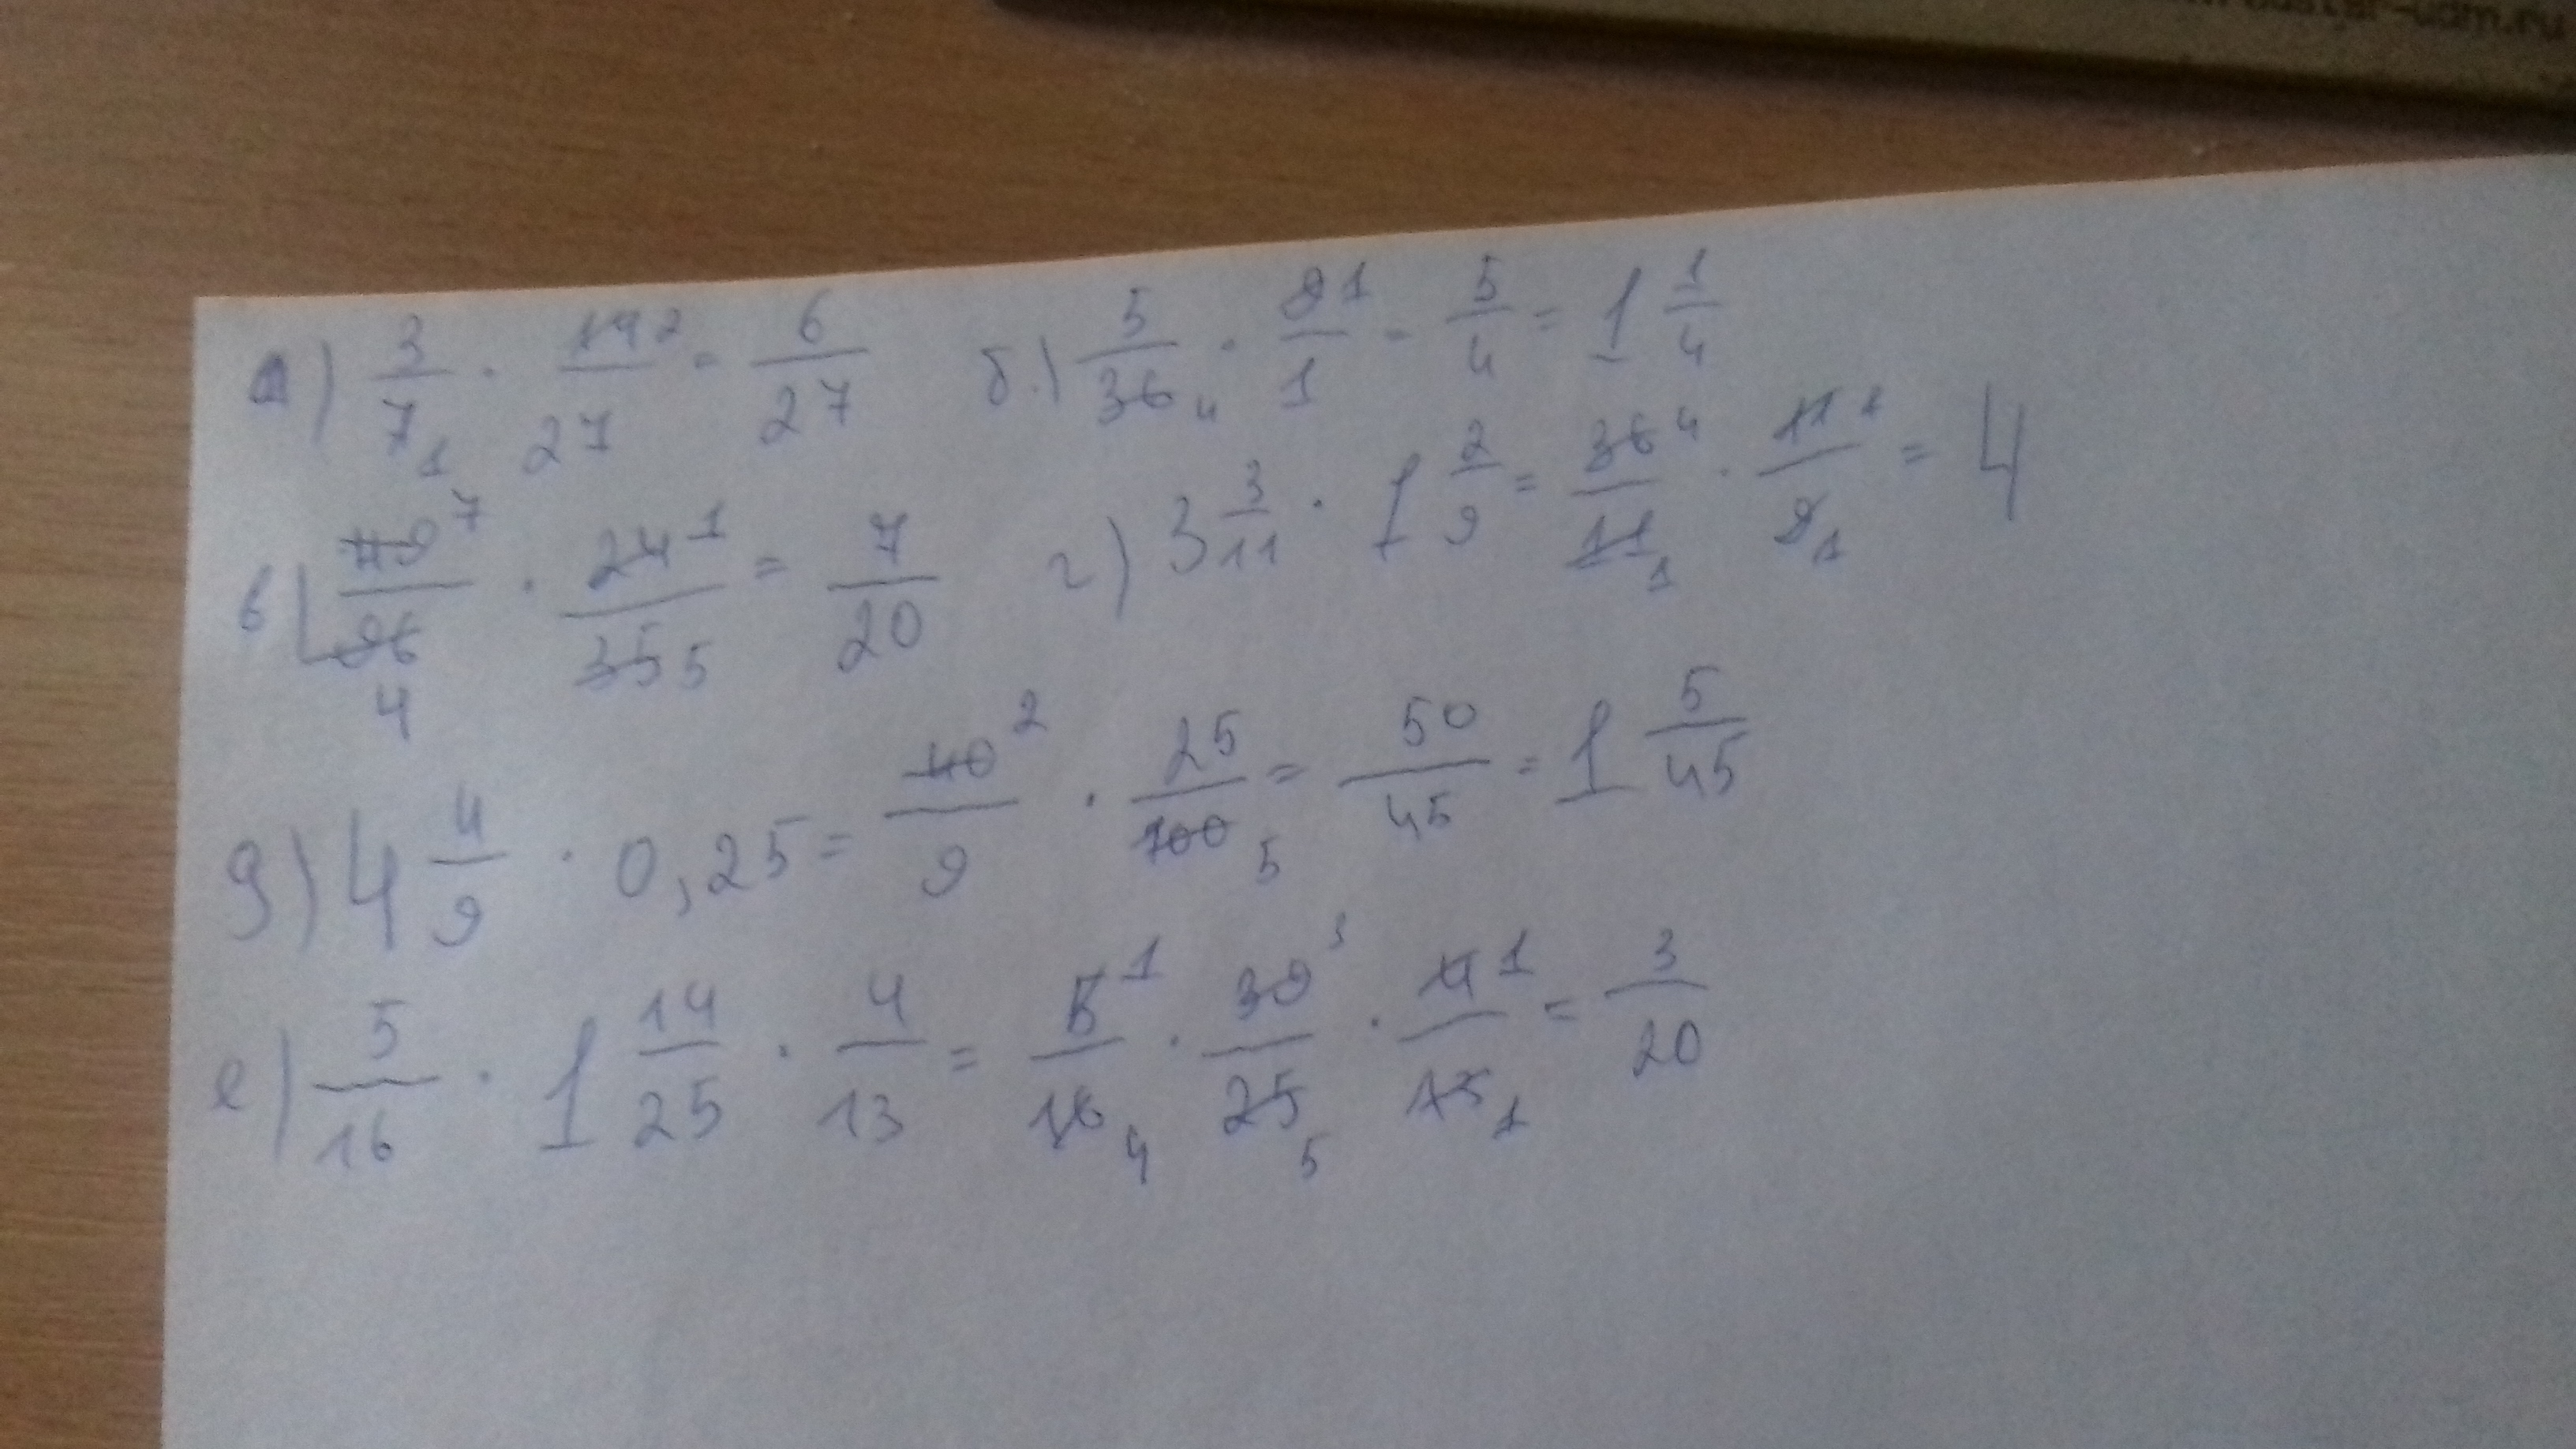 а) 3/7 1 · 14 2/27 = 6/27 б.) 5/36 4 · 9 1/1 = 5/4 = 1 1/4
в) 49 7/96 4 · 24 1/35 5 = 7/20 г) 3 3/11 · 1 2/9 = 36 4/11 1 · 11 1/9 1 = 4
д) 4 4/9 · 0,25 = 40 2/9 · 25/100 5 = 50/45 = 1 5/45
е) 5/16 · 1 14/25 · 4/13 = 5 1/16 4 · 39 3/25 5 · 4 1/13 1 = 3/20